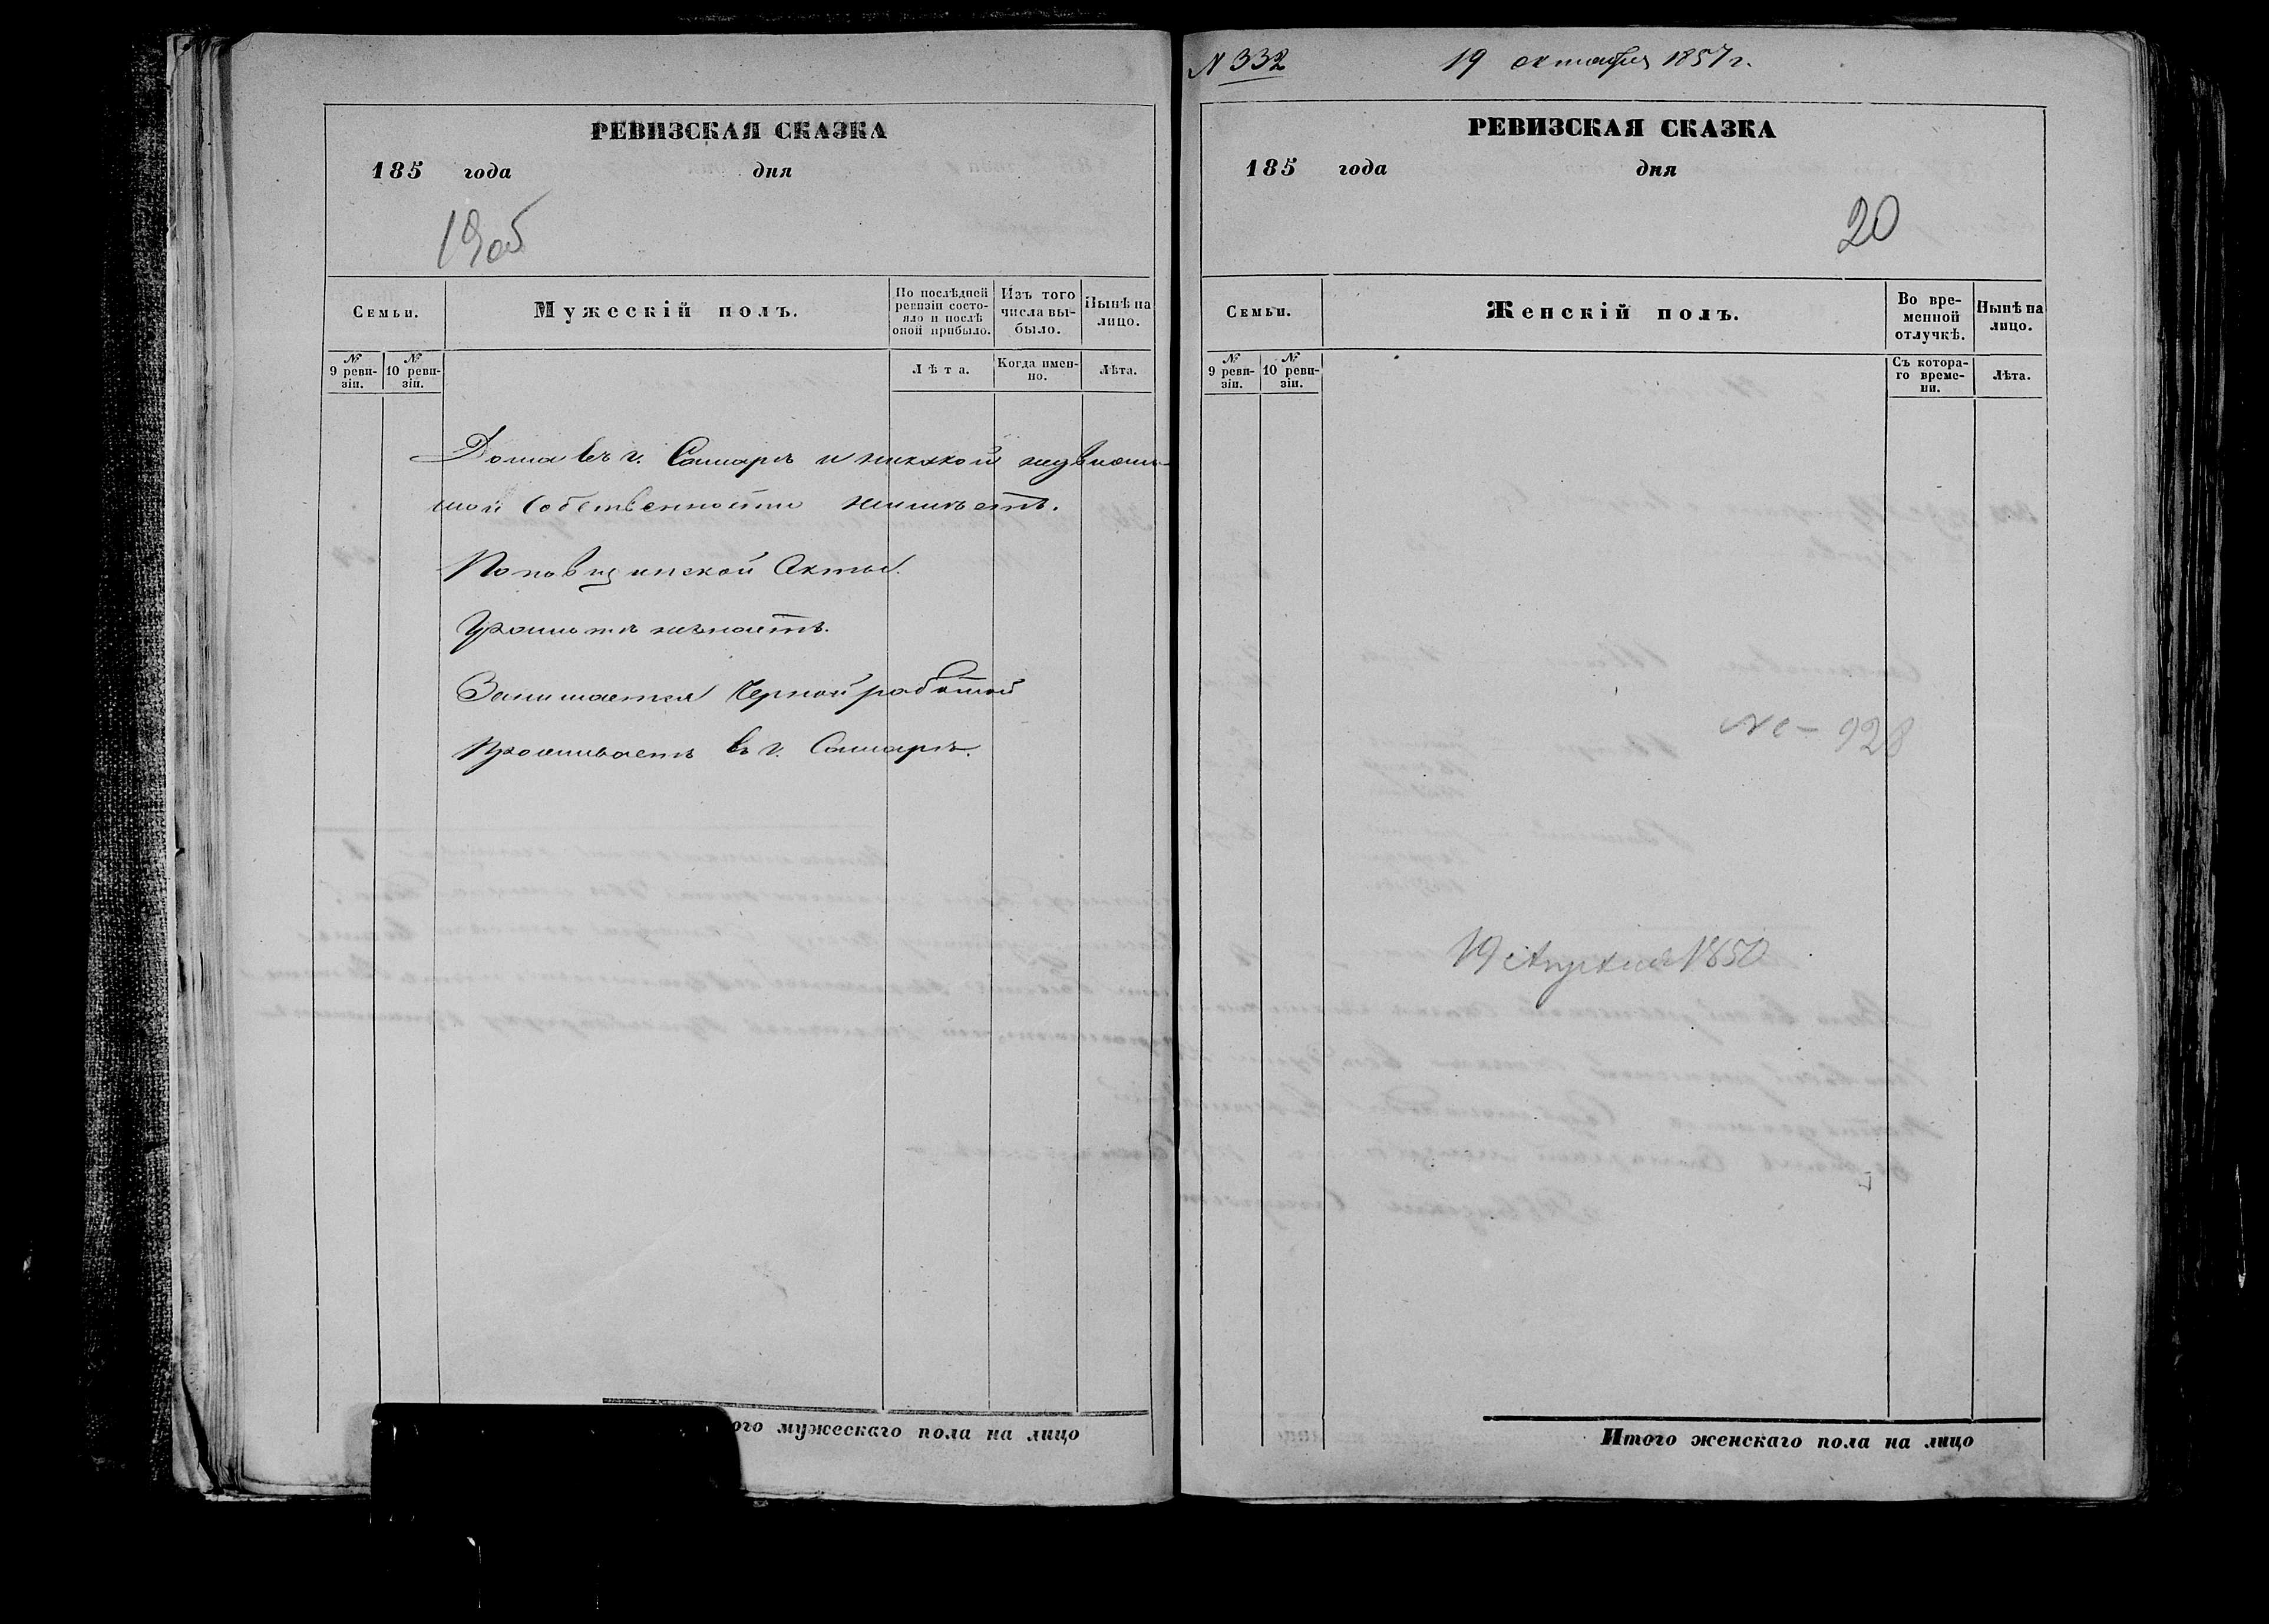 РЕВИЗСКАЯ СКАЗКА
185 года дня
19об
Семьи.
Мужескій полъ.
По послѣдней ревизіи состояло и послѣ оной прибыло.
Изъ того числа выбыло.
Нынѣ на лицо.
№ 9 ревизіи.
№ 10 ревизіи.
Лѣта.
Когда именно.
Лѣта.
Дома въ г. Самарѣ и никакой недвижи-
мой собственности неимѣетъ.
Занимается черной работой
Проживаетъ въ г. Самарѣ.
ого мужескаго пола на лицо
N 332
19 октября 1857 г.
РЕВИЗСКАЯ СКАЗКА
185 года дня
20
Семьи.
Женскій полъ.
Во временной отлучкѣ.
Нынѣ на лицо.
№ 9 ревизіи.
№ 10 ревизіи.
Съ котораго времени.
Лѣта.
928
19 Апреля 1850
Итого женскаго пола на лицо